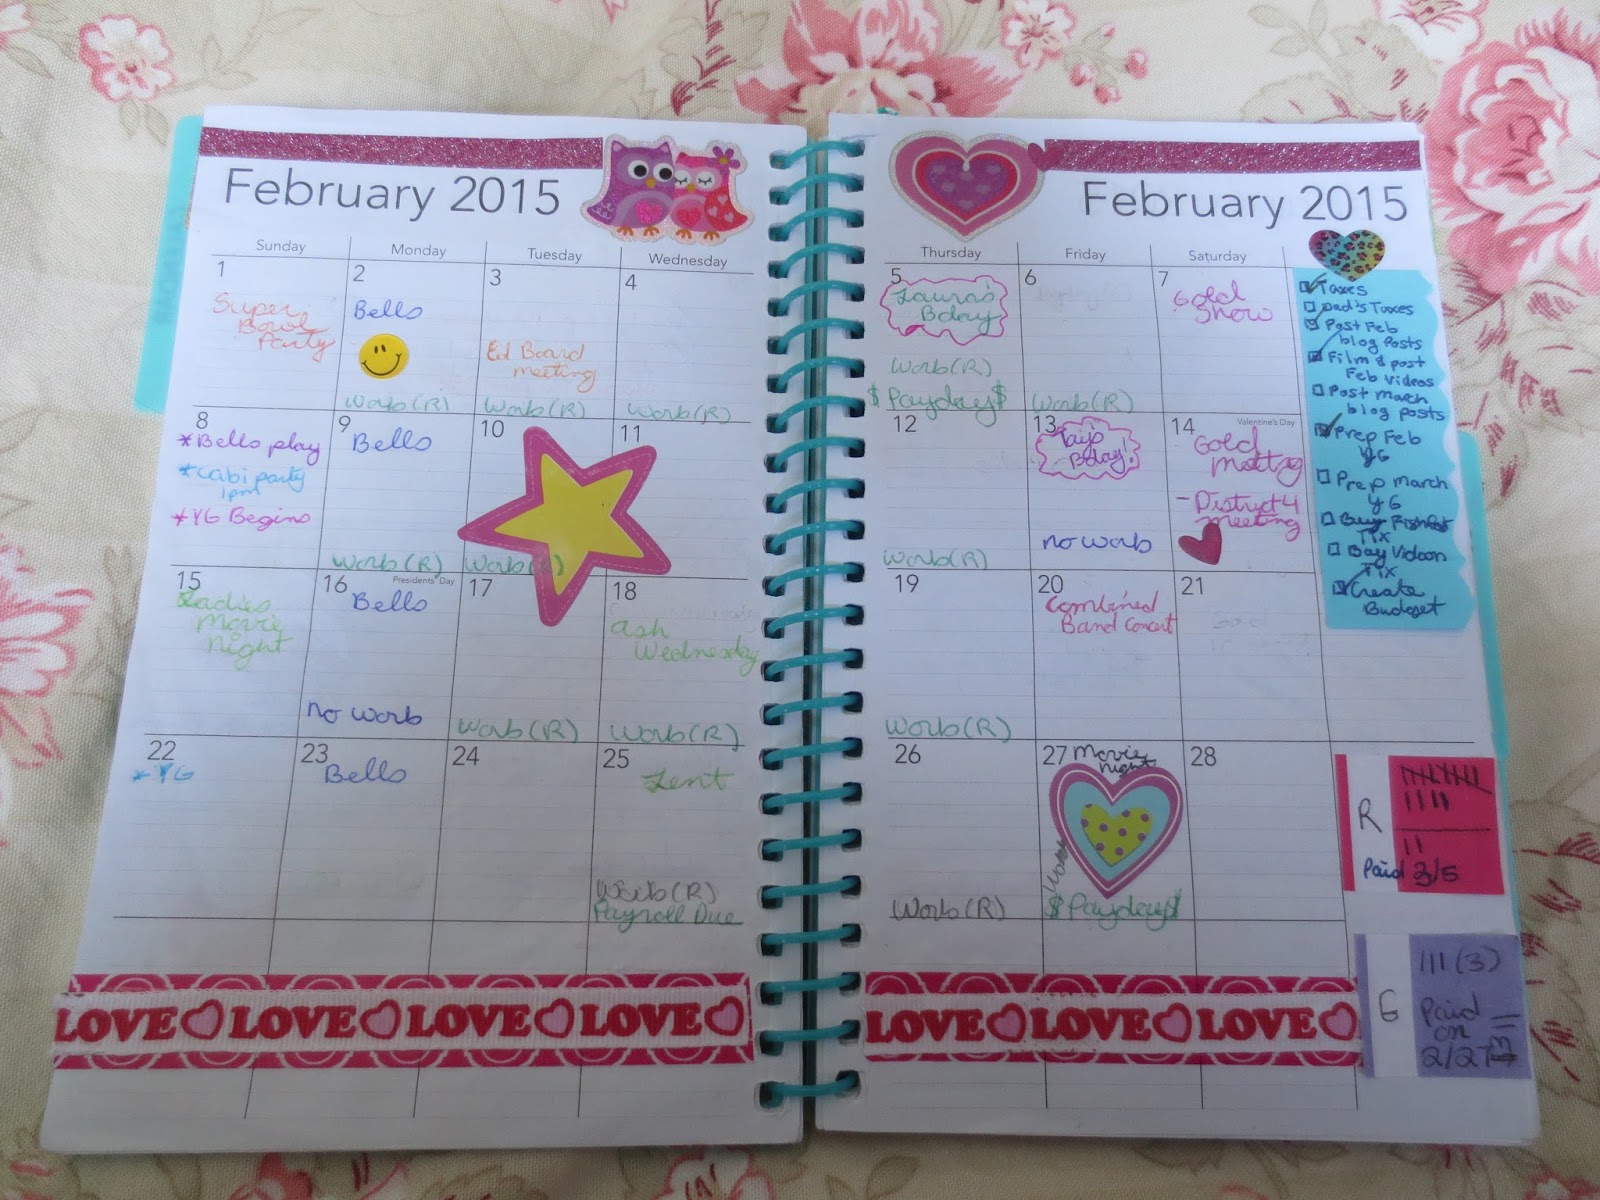 February 2015
Sunday Monday Tuesday Wednesday
1
Super
Bowl
Party
2
Bells
Work(R)
3
Ed Board
meeting
Work(R)
4
Work(R)
8
*Bells play
*Cabi party
1pm
*YG Begins
9
Bells
Work(R)
10
Work(R)
11
15
Ladies
Movie
Night
16
Presidents' Day
Bells
no work
17
Work(R)
18
Ash
Wednesday
Work(R)
22
*YG
23
Bells
24
25
Lent
Work(R)
Payroll Due
LOVE LOVE LOVE LOVE
February 2015
Thursday Friday Saturday
5
Laura's
Bday
Work(R)
$Payday$
6
Work(R)
7
Gold
Show
12
Work(R)
13
Bday!
no work
14
Valentine's Day
Gold
- District 4
meeting
19
Work(R)
20
Combined
Band Concert
21
26
Work(R)
27
Movie
Night
Work
$Payday$
28
Taxes
Dad's Taxes
Post Feb
blog Posts
Film & post
Feb Videos
Post March
blog posts
Prep Feb
YG
Prep March
YG
Buy
Tix
Tix
Create
Budget
R
Paid 3/5
G
III (3)
Paid
on
2/27
LOVE LOVE LOVE